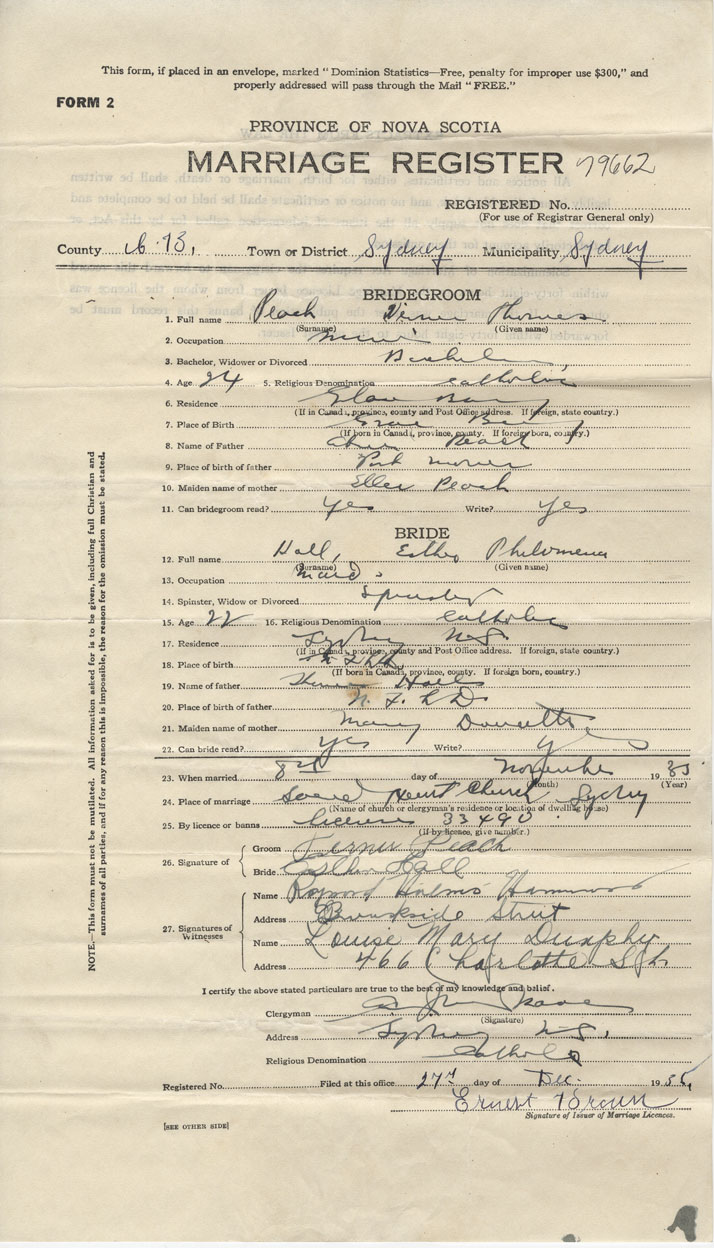 This form, if placed in an envelope, marked "Dominion Statistics—Free, penalty for improper use $300," and
properly addressed will pass through the Mail "FREE."
FORM 2
PROVINCE OF NOVA SCOTIA
MARRIAGE REGISTER 79662
REGISTERED No.
(For use of Registrar General only)
County C. B. Town or District Sydney Municipality Sydney
BRIDEGROOM
1. Full name Peach Verner Thomas
(Surname) (Given name)
2. Occupation
3. Bachelor, Widower or Divorced Bachelor
4. Age 24 5. Religious Denomination Catholic
6. Residence Glace Bay
(If in Canada, province, county and Post Office address. If foreign, state country.)
7. Place of Birth Glace Bay
(If born in Canada, province, county. If foreign born, country.)
8. Name of Father Peach
9. Place of birth of father Port
10. Maiden name of mother Ellen Peach
11. Can bridegroom read? Yes Write? Yes
BRIDE
12. Full name Hall, Esther Philomena
(Surname) (Given name)
13. Occupation Maid
14. Spinster, Widow or Divorced Spinster
15. Age 22 16. Religious Denomination Catholic
17. Residence Sydney N.S.
(If in Canada, province, county and Post Office address. If foreign, state country.)
18. Place of birth N. F. L. D.
(If born in Canada, province, county. If foreign born, country.)
19. Name of father Hall
20. Place of birth of father N. F. L. D.
21. Maiden name of mother Mary
22. Can bride read? Yes Write?
23. When married 8th day of November 1935
(Month) (Year)
24. Place of marriage Sacred Heart Church Sydney
(Name of church or clergyman's residence or location of dwelling house)
25. By licence or banns License 33490
(If by licence, give number.)
26. Signature of
Groom Verner Peach
Bride Esther Hall
27. Signatures of Witnesses
Name
Address Brookside Street
Name Louise Mary Dunphy
Address 466 Charlotte
I certify the above stated particulars are true to the best of my knowledge and belief.
Clergyman
(Signature)
Address Sydney N.S.
Religious Denomination Catholic
Registered No. Filed at this office 27th day of Dec. 1935
Ernest Brown
Signature of Issuer of Marriage Licences.
[SEE OTHER SIDE]
NOTE.—This form must not be mutilated. All information asked for is to be given, including full Christian and
surnames of all parties, and if for any reason this is impossible, the reason for the omission must be stated.